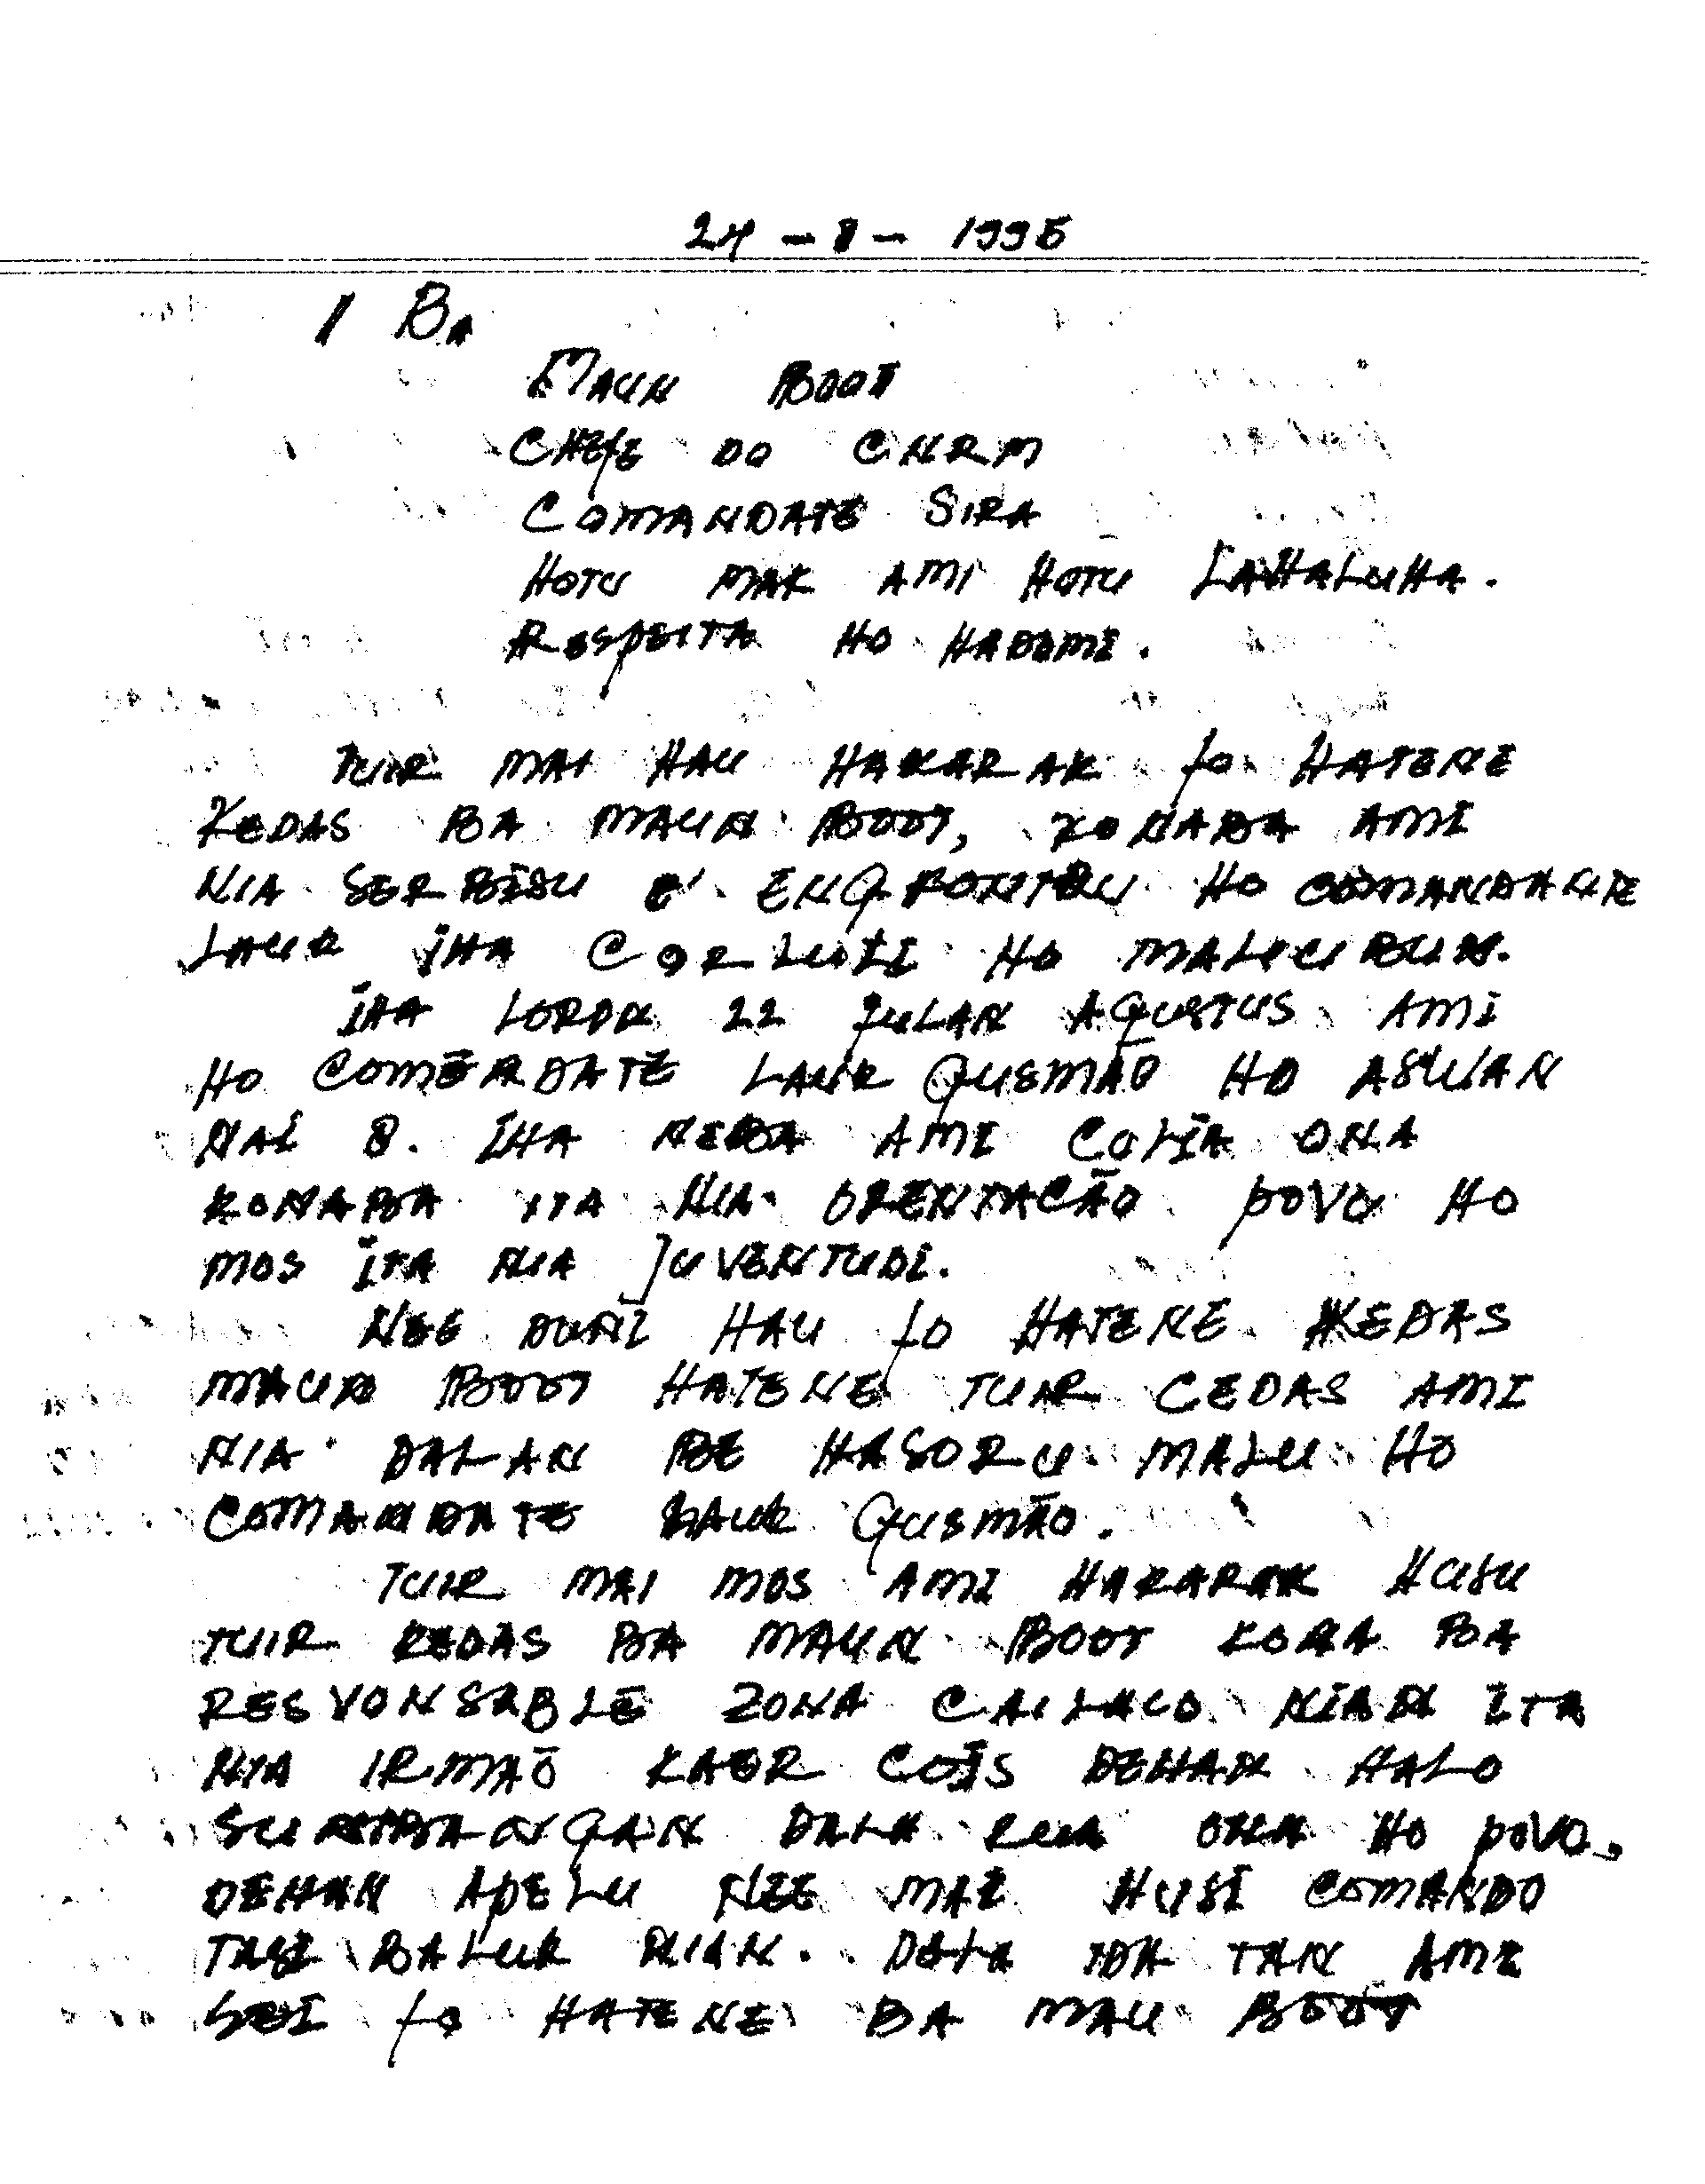 24 - 8 - 1995
1 BA
MAUN BOOT
CHEFE DO CNRM
COMANDATE SIRA
HOTU MAK AMI HOTU LAHALUHA.
RESPEITA HO HADOMI.
TUIR MAI HAU HAKARAK FO HATENE
KEDAS BA MAUN BOOT, KONABA AMI
NIA SERBISU E' ENGKONTRU HO COMANDANTE
LAUR IHA CORLULI HO MALUCU BUN.
IHA LORON 22 FULAN AGUSTUS AMI
HO COMENDATE LAUR GUSMÃO HO ASUAN
NAI 8. IHA NEBA AMI COLIA ONA
KONABA ITA NIA ORENTACÃO POVO HO
MOS ITA NIA JUVENTUDI.
NEE DUNI HAU FO HATENE KEDAS
MAUN BOOT HATENE TUIR CEDAS AMI
NIA DALAN BE HASORU MALU HO
COMANDATE LAUR GUSMÃO.
TUIR MAI MOS AMI HAKARAK HUSU
TUIR KEDAS BA MAUN BOOT KONA BA
RESVONSABLE ZONA CAILACO NIAN ITA
NIA IRMAÕ KAER COIS DEHAN HALO
SUMBANGAN DALA RUA ONA HO POVO,
DEHAN APELU NEE MAI HUSI COMANDO
TASI BALUR NIAN. DALA IDA TAN AMI
SEI FO HATENE BA MAU BOOT